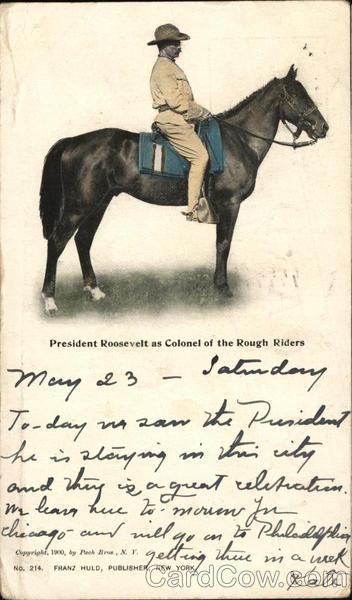 President Roosevelt as Colonel of the Rough Riders
May 23 - Saturday
To-day we saw the President
he is staying in this city
and there is a great celebration.
We leave here to-morrow for
Chicago and will go on to Philadelphia
Copyright, 1900, by Pach Bros., N. Y.
getting there in a week
No. 214. FRANZ HULD, PUBLISHER, NEW YORK.
CardCow.com